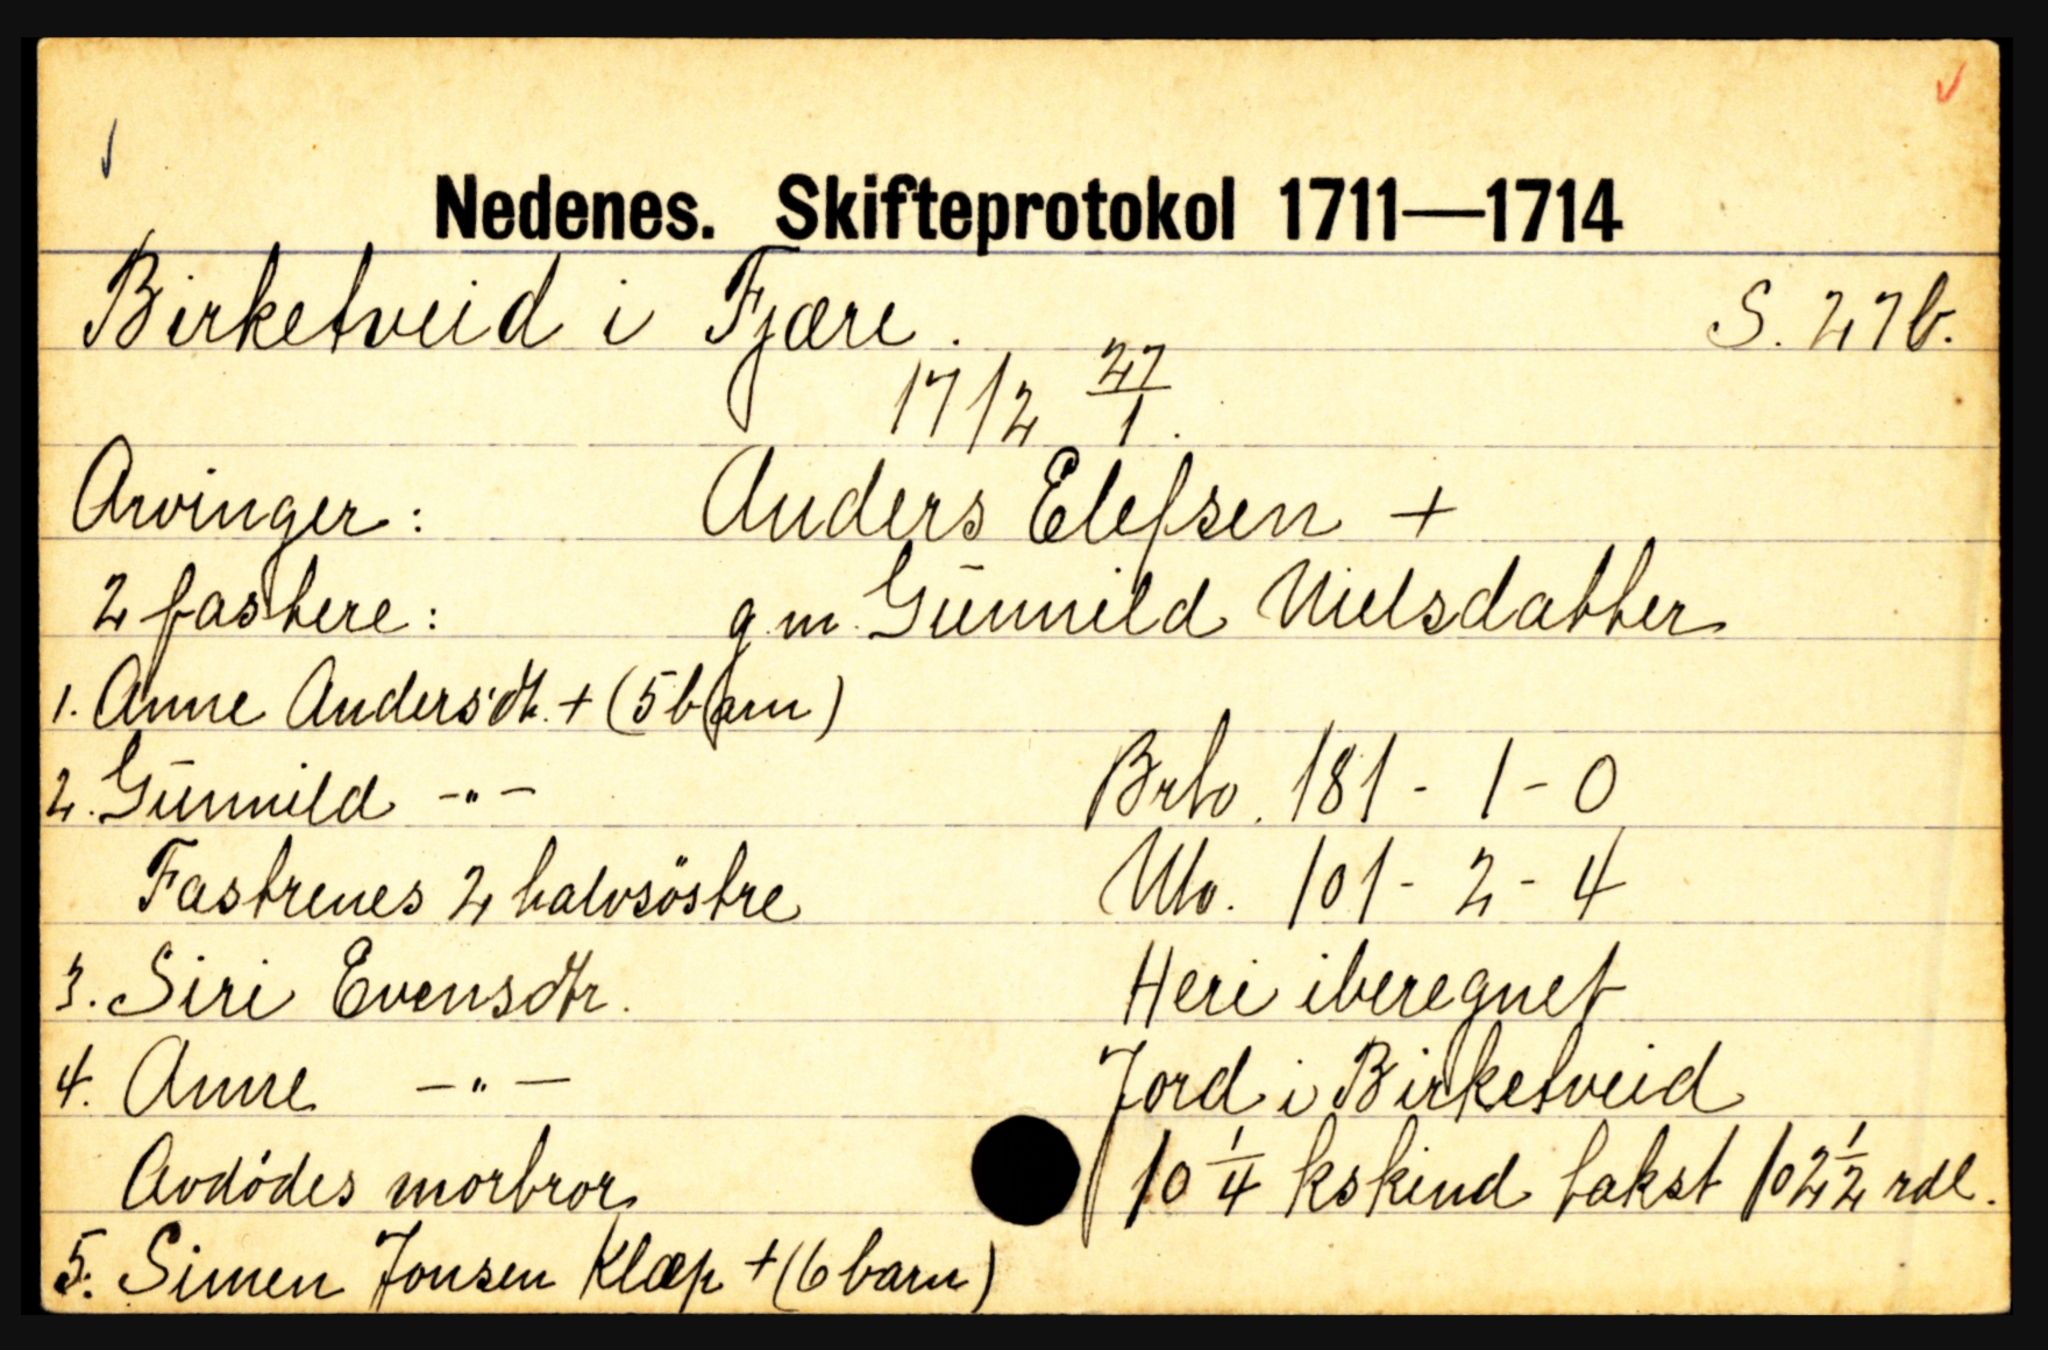 Nedenes. Skifteprotokol 1711—1714
Birketveid i Fjære. S. 27b.
1712 27/1.
Arvinger: Anders Elefsen +
2 fastere: g.m. Gunnild Nielsdatter
1. Anne Andersdtr. + (5 barn)
2. Gunnild -"- Brto. 181 - 1 - 0
Fastrenes 2 halvsöstre Nto. 101 - 2 - 4
3. Siri Evensdtr. Heri iberegnet
4. Anne -"- Jord i Birketveid
Avdödes morbror 10 1/4 kskind takst 102 1/2 rdl.
5. Simen Jonsen Klæp + (6 barn)